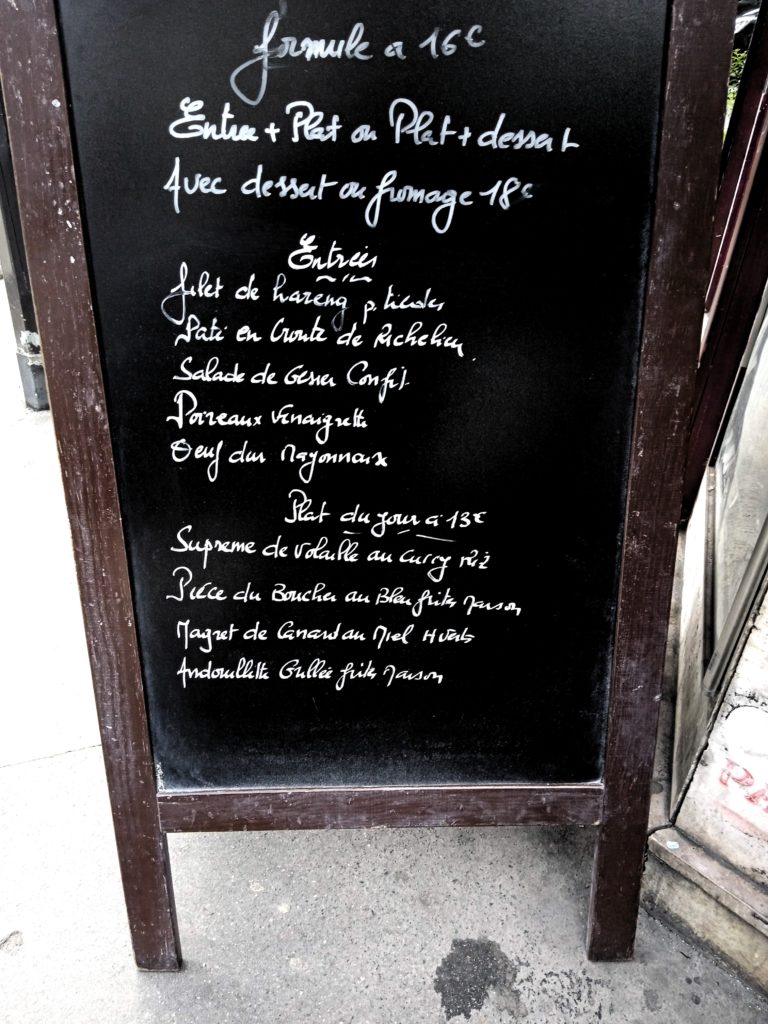 formule a 16€
Entree + Plat ou Plat + dessert
Avec dessert ou fromage 18€
Entrées
filet de hareng p. tiedes
Paté en Croute de Richelieu
Salade de Gesier Confit
Poireaux Vinaigrette
Oeuf dur Mayonnaise
Plat du jour a 13€
Supreme de Volaille au Curry Riz
Piéce du Boucher au Bleu frites Maison
Magret de Canard au Miel H Verts
Andouillette Grillée frites Maison